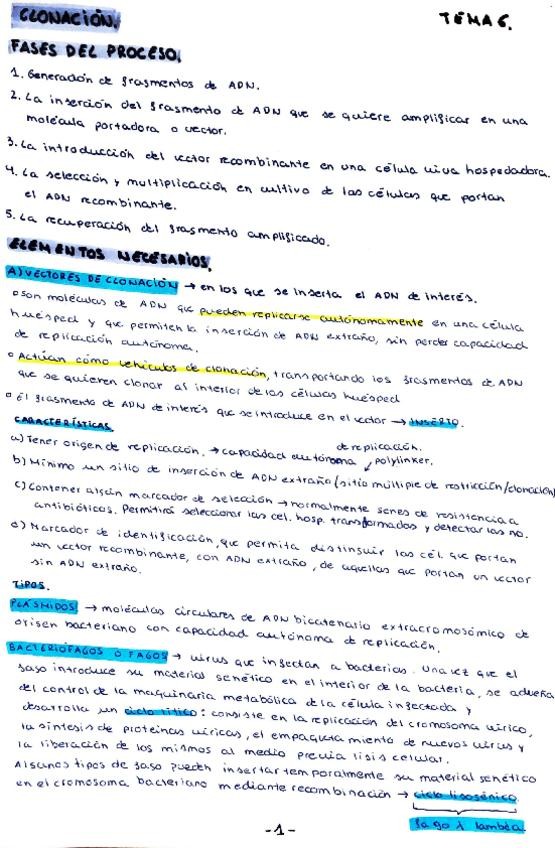 CLONACIÓN. TEMA 6.
FASES DEL PROCESO.
1. Generación de fragmentos de ADN.
2. La inserción del fragmento de ADN que se quiere amplificar en una
molécula portadora o vector.
3. La introducción del vector recombinante en una célula viva hospedadora.
4. La selección y multiplicación en cultivo de las células que portan
el ADN recombinante.
5. La recuperación del fragmento amplificado.
ELEMENTOS NECESARIOS.
A) VECTORES DE CLONACIÓN → en los que se inserta el ADN de interés.
o Son moléculas de ADN que pueden replicarse autónomamente en una célula
huésped y que permiten la inserción de ADN extraño, sin perder capacidad
de replicación autónoma.
o Actúan como vehículos de clonación, transportando los fragmentos de ADN
que se quieren clonar al interior de las células huésped
o El fragmento de ADN de interés que se introduce en el vector → INSERTO.
CARACTERÍSTICAS
a) Tener origen de replicación. → capacidad autónoma de replicación.
b) Mínimo un sitio de inserción de ADN extraño (sitio múltiple de restricción/clonación)
polylinker.
c) Contener algún marcador de selección → normalmente genes de resistencia a
antibióticos. Permitirá seleccionar las cel. hosp. transformados y detectar las no.
d) Marcador de identificación, que permita distinguir las cél. que portan
un vector recombinante, con ADN extraño, de aquellas que portan un vector
sin ADN extraño.
TIPOS.
PLÁSMIDOS → moléculas circulares de ADN bicatenario extracromosómico de
origen bacteriano con capacidad autónoma de replicación.
BACTERIÓFAGOS O FAGOS → virus que infectan a bacterias. Una vez que el
fago introduce su material genético en el interior de la bacteria, se adueña
del control de la maquinaria metabólica de la célula infectada y
desarrolla un ciclo lítico: consiste en la replicación del cromosoma vírico,
la síntesis de proteínas víricas, el empaquetamiento de nuevos virus y
la liberación de los mismos al medio previa lisis celular.
Algunos tipos de fago pueden insertar temporalmente su material genético
en el cromosoma bacteriano mediante recombinación → ciclo lisogénico.
fago λ lambda.
-1-